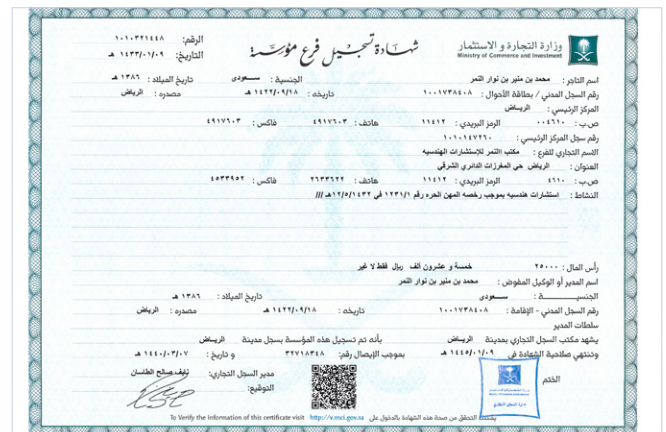 وزارة التجارة و الاستثمار
Ministry of Commerce and Investment
شهادة تسجيل فرع مؤسسة
الرقم: ١٠١٠٣٢١٤٤٨
التاريخ: ١٤٣٣/٠١/٠٩ هـ
اسم التاجر : محمد بن منير بن نوار النمر الجنسية : سعودى تاريخ الميلاد : ١٣٨٦ هـ
رقم السجل المدني / بطاقة الأحوال : ١٠٠١٧٣٨٤٠٨ تاريخه : ١٤٢٢/٠٩/١٨ هـ مصدره : الرياض
المركز الرئيسي : الرياض
ص.ب : ٠٠٤٦١٠ الرمز البريدي : ١١٤١٢ هاتف : ٤٩١٧٦٠٣ فاكس : ٤٩١٧٦٠٣
رقم سجل المركز الرئيسي : ١٠١٠١٤٧٢٦٠
الاسم التجاري للفرع : مكتب النمر للإستشارات الهندسيه
العنوان : الرياض حي المغرزات الدائري الشرقي
ص.ب : ٤٦١٠ الرمز البريدي : ١١٤١٢ هاتف : ٢٦٣٣٦٢٢ فاكس : ٤٥٣٣٩٥٢
النشاط : استشارات هندسيه بموجب رخصه المهن الحره رقم ١٢٣١/١ في ١٢/٥/١٤٣٢هـ ///
رأس المال : ٢٥٠٠٠ خمسة و عشرون ألف ريال فقط لا غير
اسم المدير أو الوكيل المفوض : محمد بن منير بن نوار النمر
الجنسيـــــة : سعودى تاريخ الميلاد : ١٣٨٦ هـ
رقم السجل المدني - الإقامة : ١٠٠١٧٣٨٤٠٨ تاريخه : ١٤٢٢/٠٩/١٨ هـ مصدره : الرياض
سلطات المدير
يشهد مكتب السجل التجاري بمدينة الرياض بأنه تم تسجيل هذه المؤسسة بسجل مدينة الرياض
وتنتهي صلاحية الشهادة في ١٤٤٥/٠١/٠٩ هـ بموجب الإيصال رقم: ٣٢٧١٨٣٤٨ و تاريخ : ١٤٤٠/٠٣/٠٧ هـ
الختم
مدير السجل التجاري: نايف صالح الطاسان
التوقيع:
يمكنك التحقق من صحة هذه الشهادة بالدخول على http://v.mci.gov.sa To Verify the information of this certificate visit